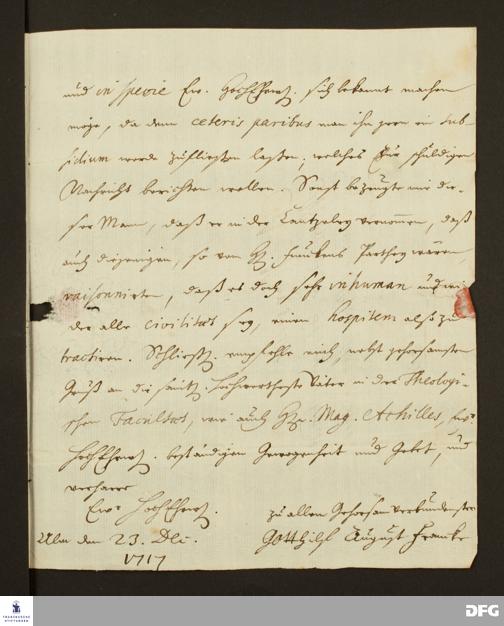 und in specie Ew. HochEhrw. sich bekannt machen
möge, da denn ceteris paribus man ihm gern ein sub-
sidium werde zufließen laßen, welches zur schuldigen
Nachricht berichten wollen. Sonst bezeugte mir die-
ser Mann, daß er in der Cantzeley vernommen, daß
auch diejenigen, so von H. Franckens Parthey wären,
raisonnirten, daß es doch sehr inhuman und wi-
der alle civilitæt sey, einen hospitem alßo zu
tractiren. Schließl. empfehle mich, nebst gehorsamsten
Gruß an die sämtl. Hochwertheste Väter in der Theologi-
schen Facultæt, wie auch H. Mag. Achilles, Ewr
HochEhrw. beständigen Gewogenheit und Gebet, und
verharre
Ewr HochEhrw.
zu allen Gehorsam verbundenster
Ulm den 23. Dec.
Gotthilf August Francke
1717
FRANCKESCHE STIFTUNGEN
DFG